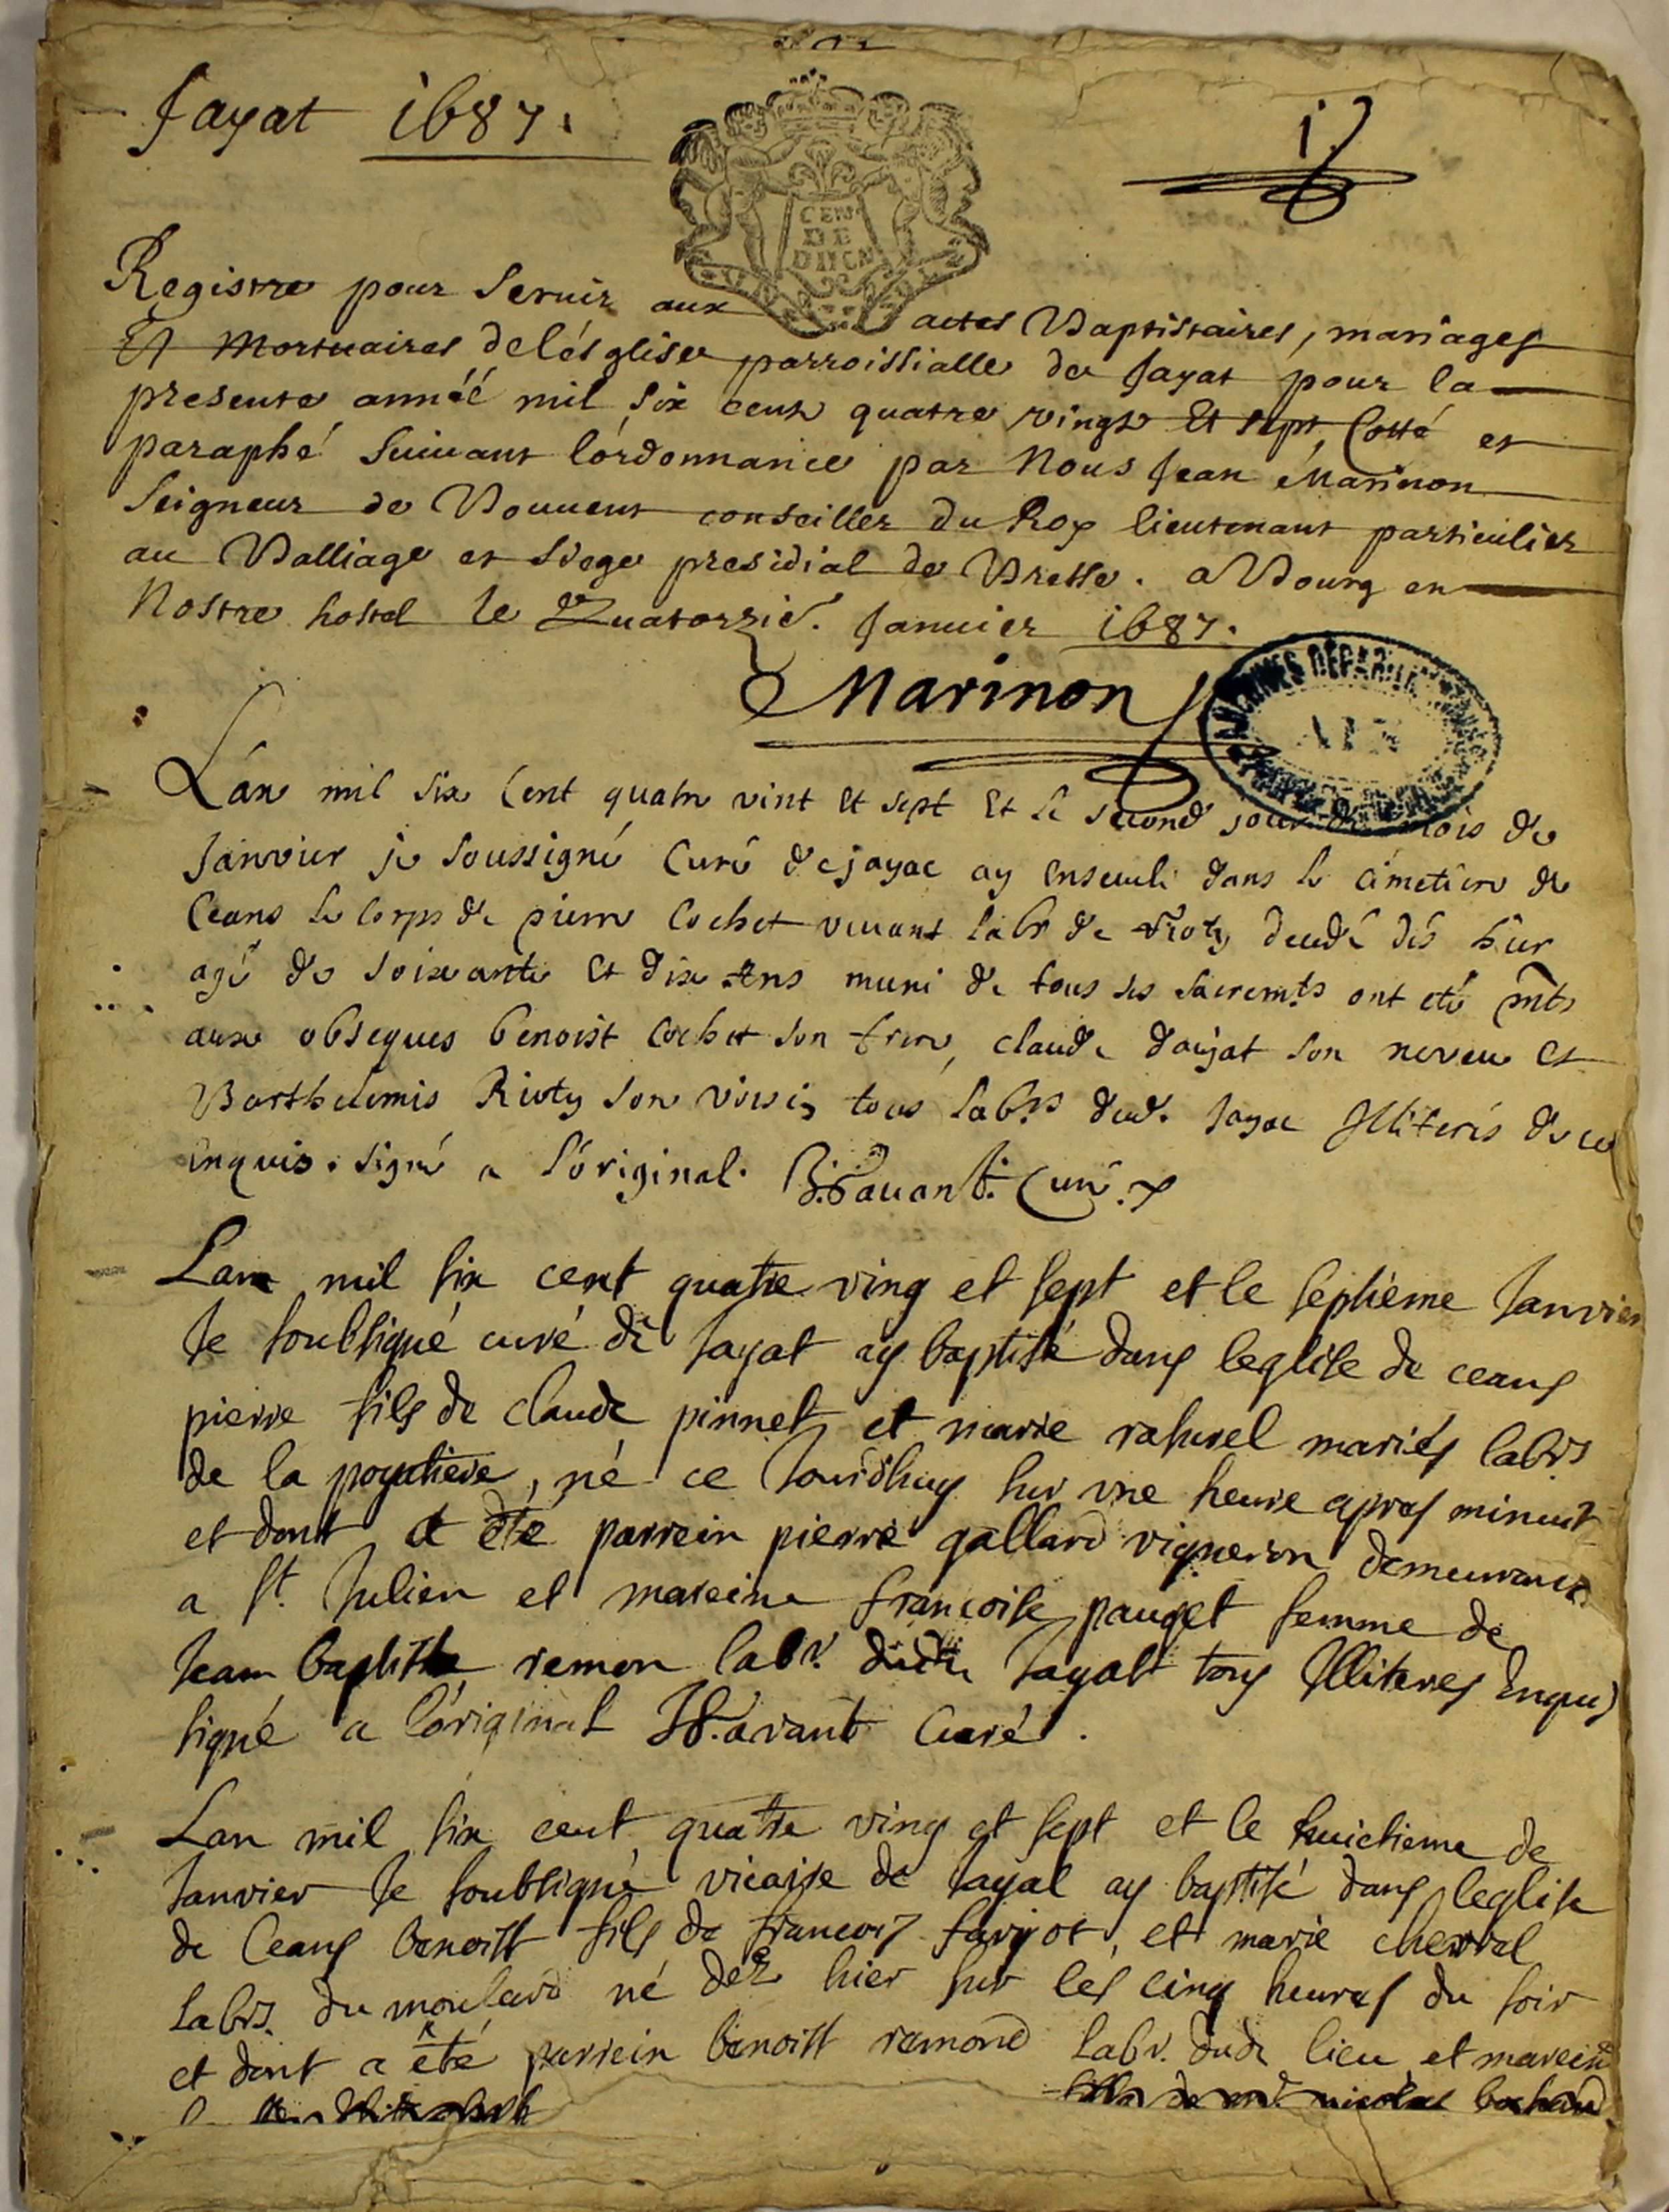 Jayat 1687.
1
CEN
DE
DIICA
Registre pour servir aux actes Baptistaires, mariages
Et Mortuaires de lésglise parroissialle de Jayat pour la
presente année mil six cent quatre vingt Et sept, Cotté et
paraphé suivant lórdonnance par Nous Jean Marinon
Seigneur de Bouvent conseiller du Roy lieutenant particulier
au Balliage et siege presidial de Bresse. a Bourg en
Nostre hostel le Quatorzie. Januier 1687.
Marinon
ARCHIVES DÉPARTEMENTALES
AIN
Lán mil six Cent quatre vint et sept et le second jour du mois de
Janvier je soussigné Curé de jayac ay enseveli dans le cimetiere de
Ceans le corps de pierre Cochet vivant labr de decedé dés hier
agé de soixante et dix Ans muni de tous ses sacremts ont eté pnts
aux obseques benoist Cochet son frere, claude son neveu et
Barthelemis Rioty son voisin tous labrs dud. Jayac Illiterés de ce
enquis. signé a lóriginal. Curé.
Lan mil six cent quatre ving et sept et le septieme Janvier
Je soubsigné curé de Jayat ay baptisé dans leglise de ceans
pierre fils de claude pinnet et marie raturel mariés labrs
de la , né ce Jourdhuy sur vne heure apres minuit
et dont a été parrein pierre gallard vigneron demeurant
a St. Julien et mareine francoise pauget femme de
Jean baptiste remon labr. dudit Jayat tous Illiteres Enquis
signé a lóriginal Curé.
Lan mil six cent quatre ving et sept et le huictieme de
Janvier Je soubsigné vicaire de Jayat ay baptisé dans leglise
de Ceans benoist fils de francois farjot, et marie chevrel
labrs. du moulard né dez hier sur les cinq heures du soir
et dont a été parrein benoist ramond labr. dudt lieu et mareine
nicolas bochard